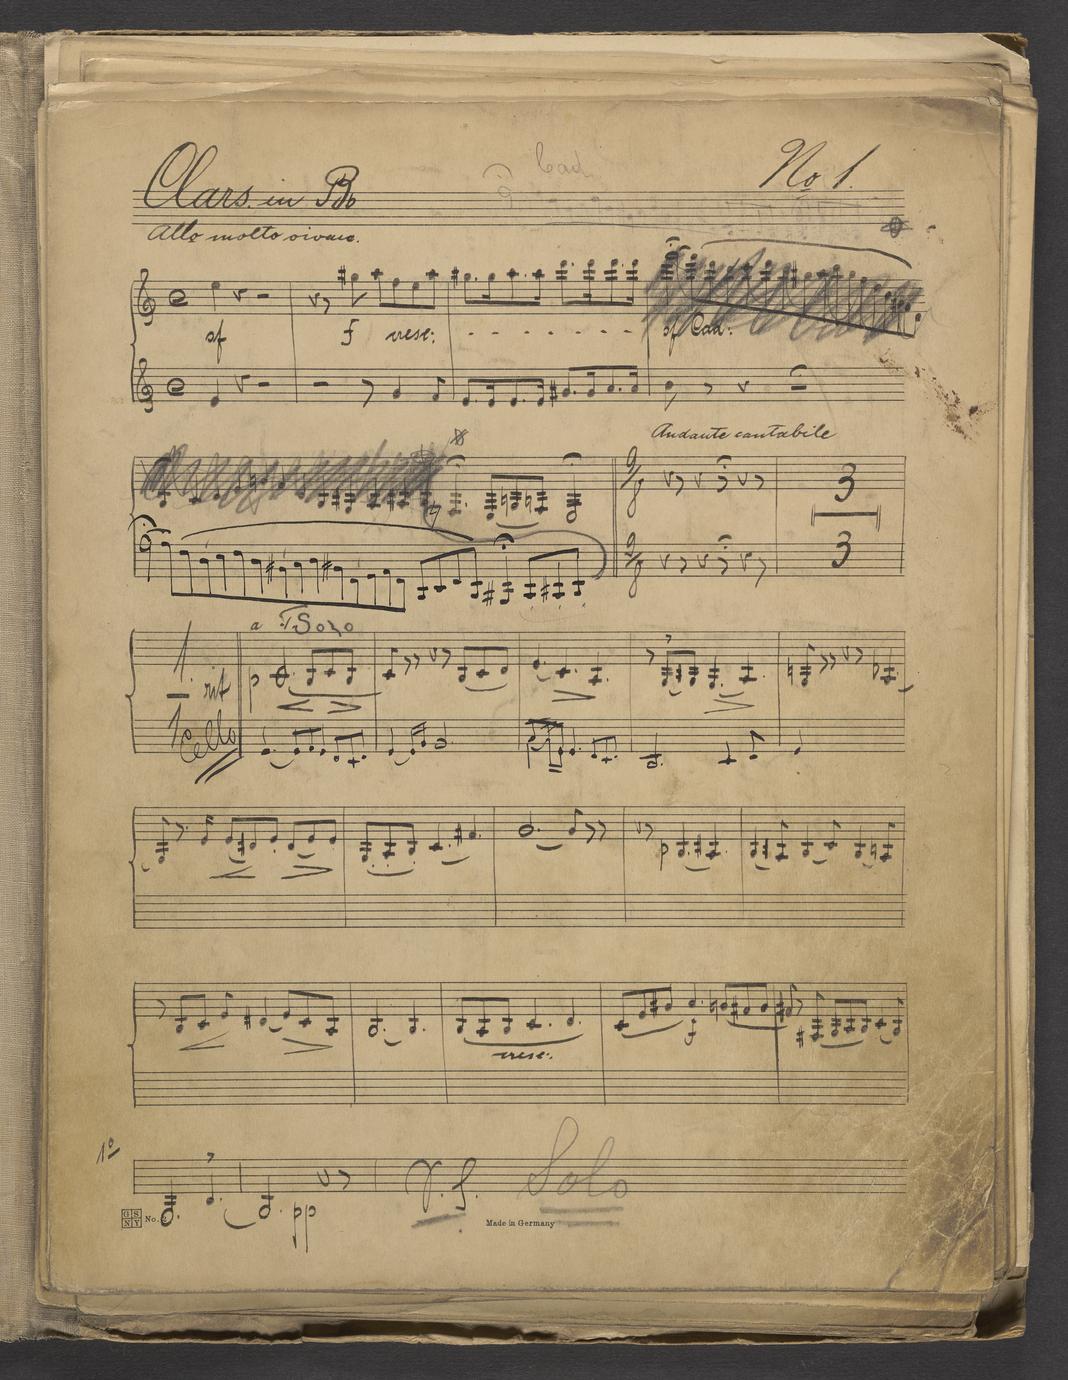 Cad.
Clars. in B♭
No 1.
Allo molto vivace.
sf f cresc: - - - - - - sf Cad:
Andante cantabile
9/8 3
9/8 3
a
Solo
1 rit p
1 Cello
p
cresc:
f
1º
pp
V.S. Solo
GS NY No. 2
Made in Germany